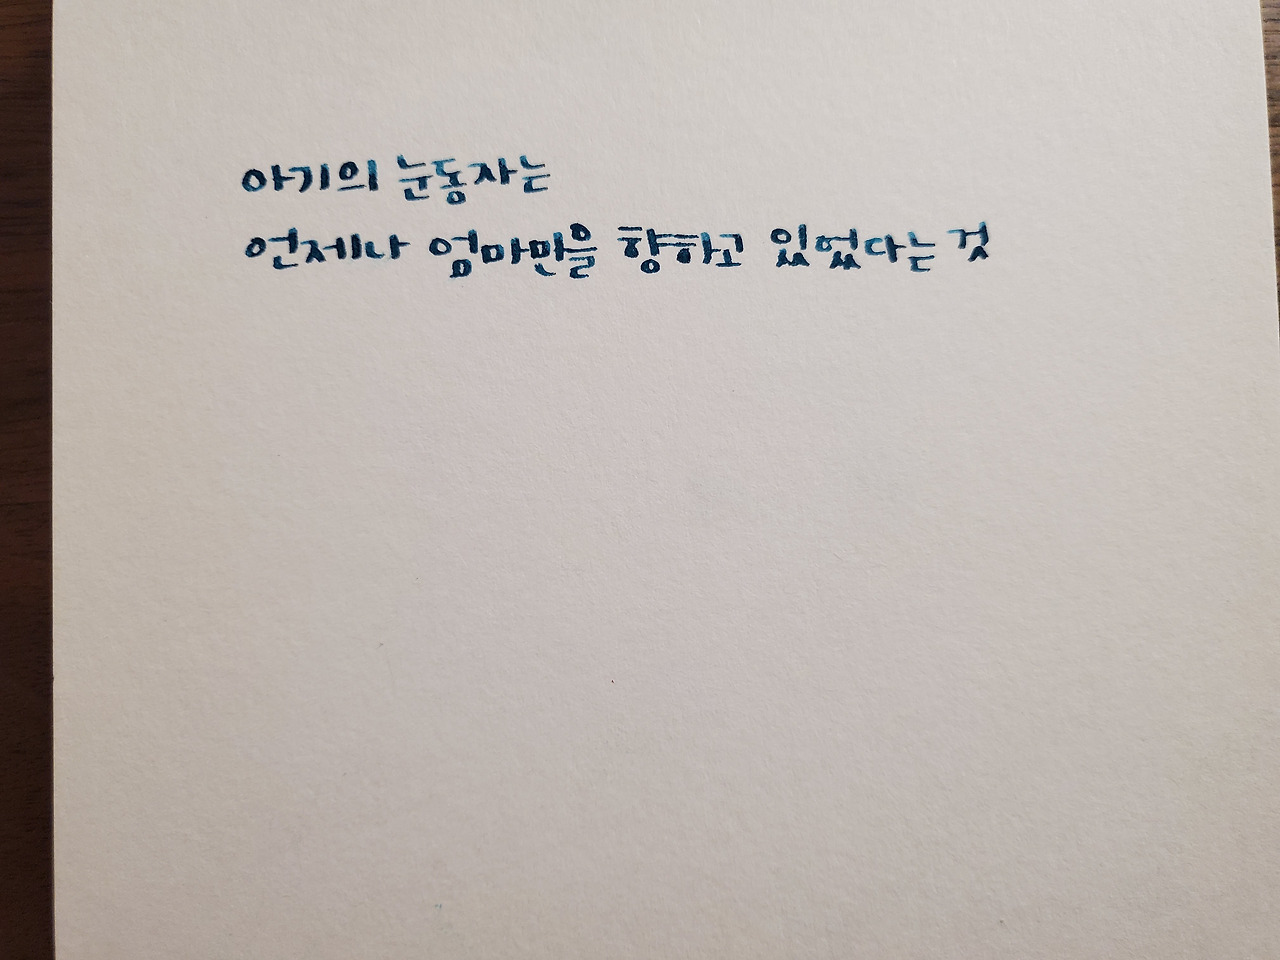 아기의 눈동자는
언제나 엄마만을 향하고 있었다는 것